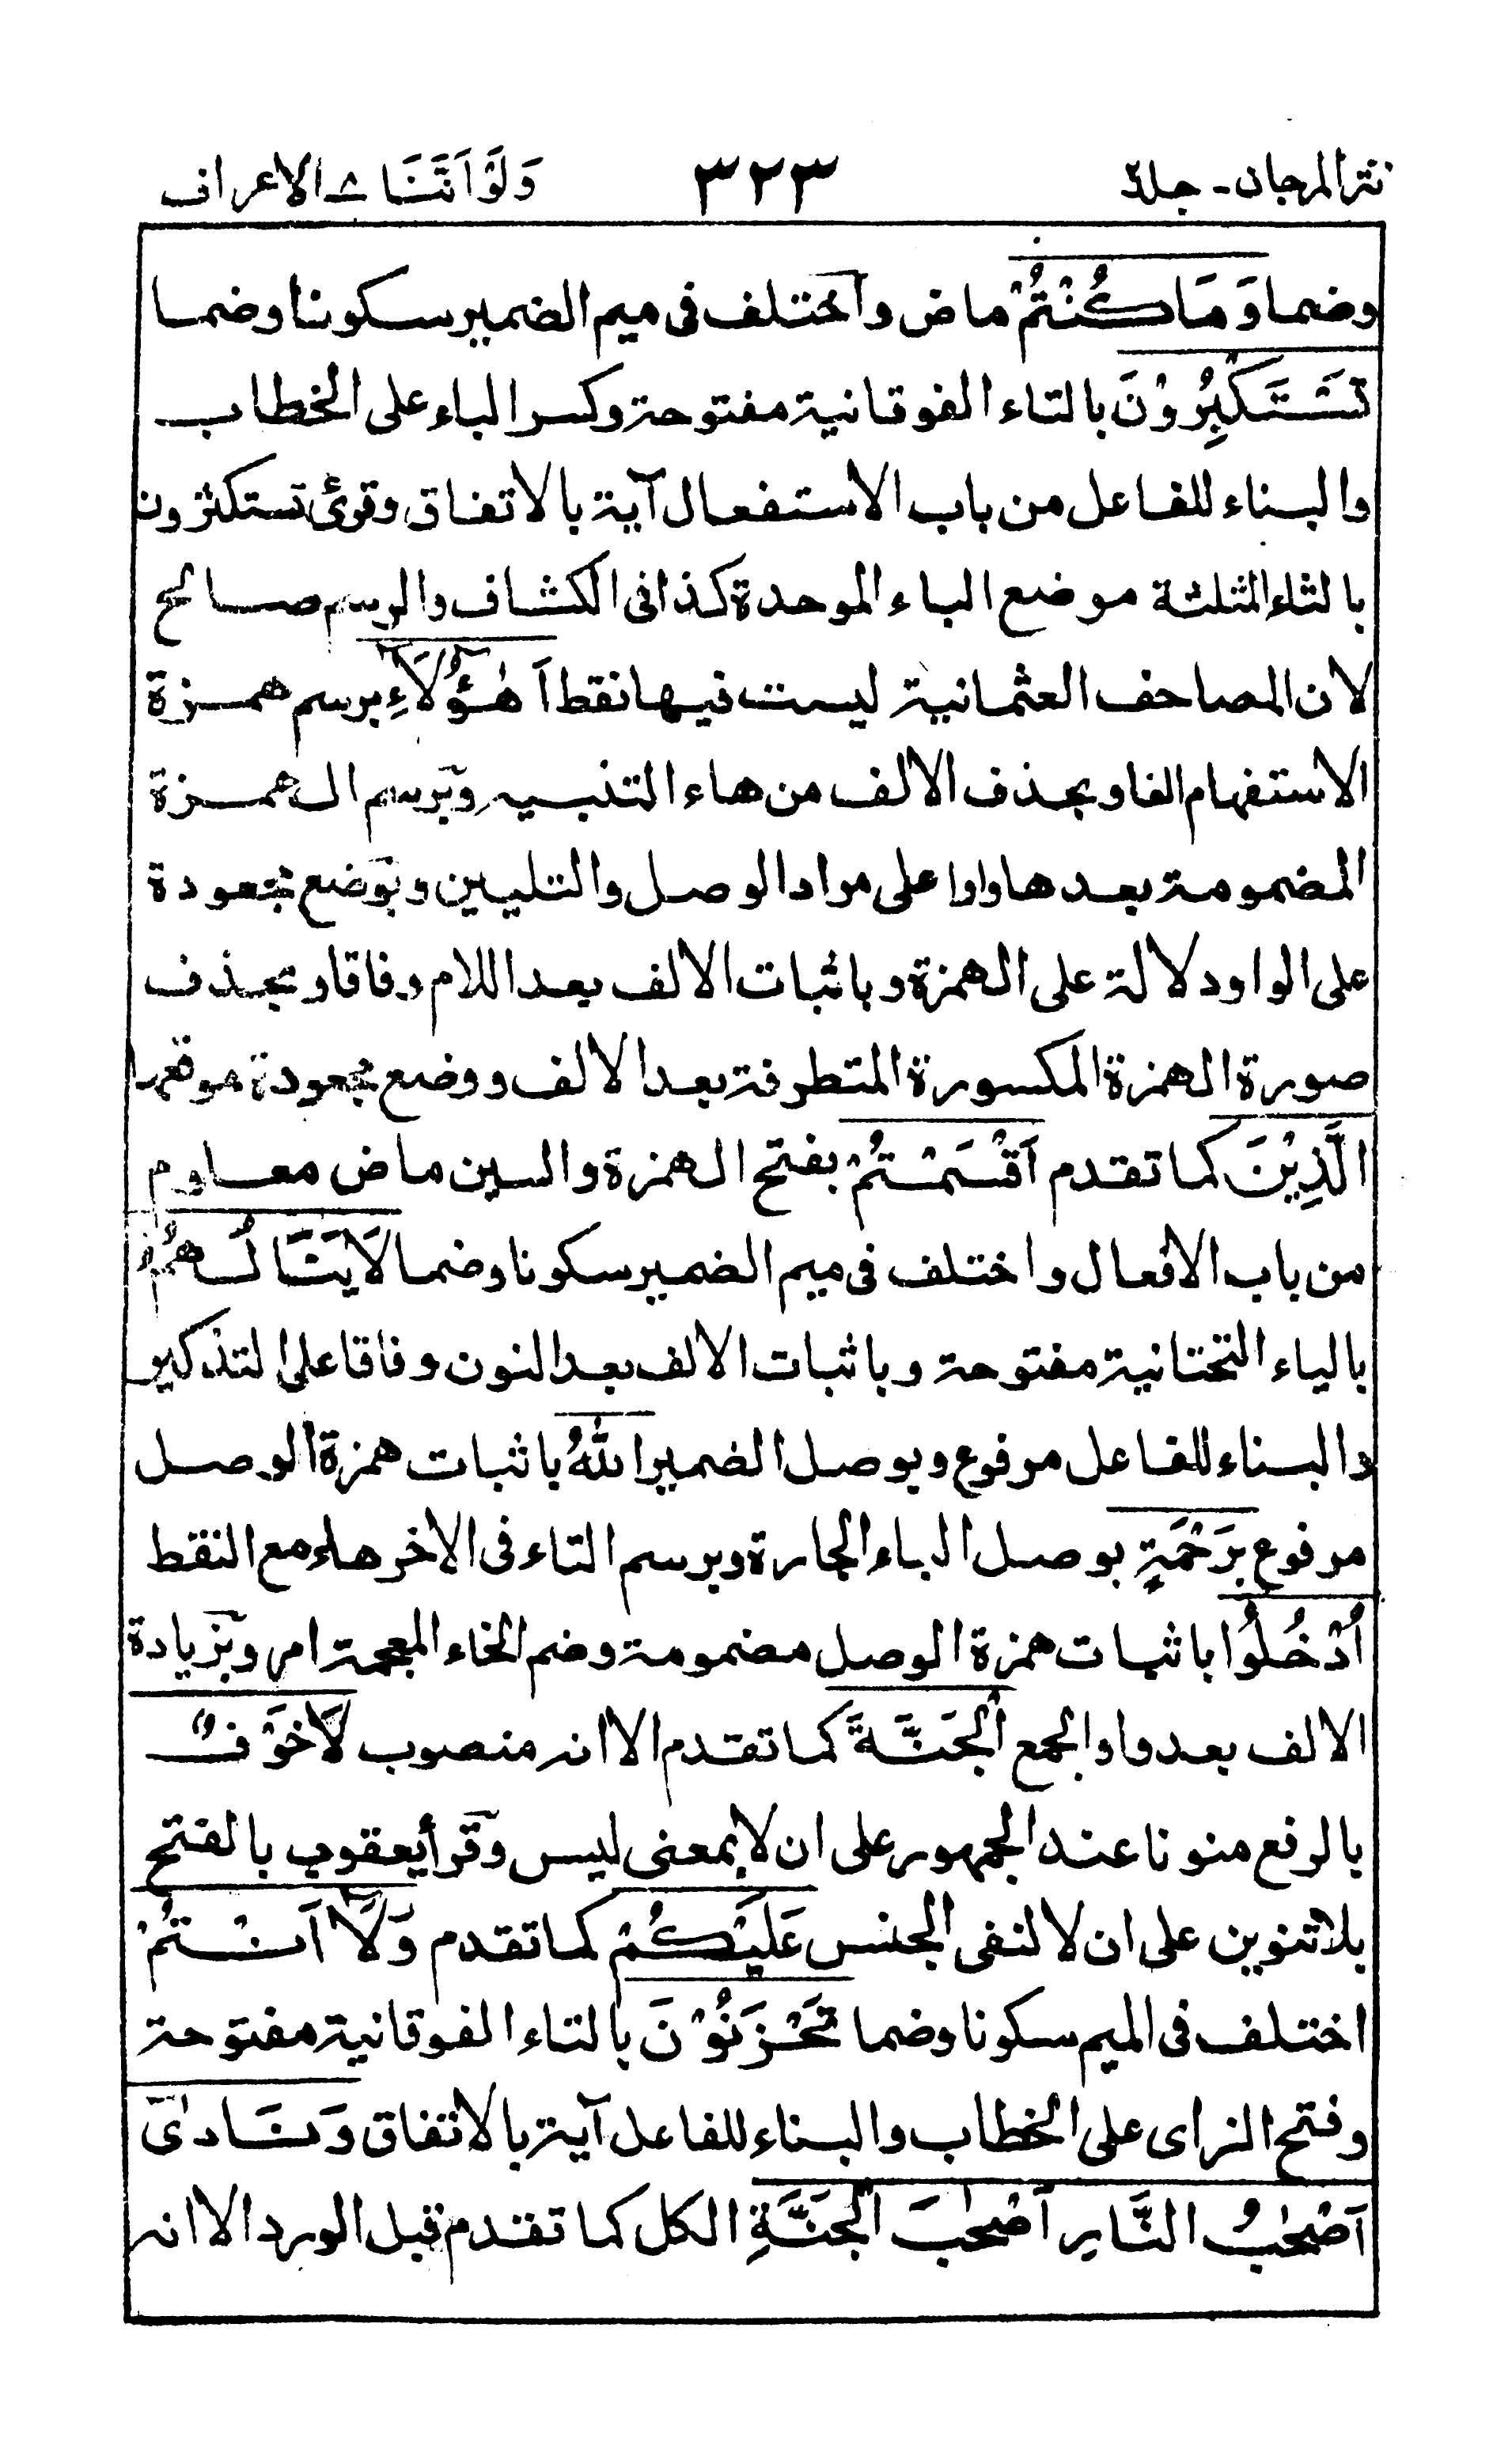 نثر المرجان - جلد٢ ٣٢٣ وَلَوْ اَنَّنَا ٨ الاعراف
وضما وَمَا كُنْتُمْ ماض واختلف فى ميم الضمير سكونا وضما
تَسْتَكْبِرُوْنَ بالتاء الفوقانية مفتوحة وكسر الباء على الخطاب
والبناء للفاعل من باب الاستفعال آية بالاتفاق وقرئ تستكثرون
بالثاء المثلثة موضع الباء الموحدة كذا فى الكشاف والرسم صالح
لان المصاحف العثمانية ليست فيها نقط اَهٰؤُلَاۤءِ برسم همزة
الاستفهام الفا وبحذف الالف من هاء التنبيه وبرسم الهمزة
المضمومة بعدها واوا على مراد الوصل والتليين وبوضع مجعودة
على الواو دلالة على الهمزة وباثبات الالف بعد اللام وفاقا وبحذف
صورة الهمزة المكسورة المتطرفة بعد الالف ووضع مجعودة موقعها
الَّذِيْنَ كما تقدم اَقْسَمْتُمْ بفتح الهمزة والسين ماض معلوم
من باب الافعال واختلف فى ميم الضمير سكونا وضما لَا يَنَالُهُمُ
بالياء التحتانية مفتوحة وباثبات الالف بعد النون وفاقا على التذكير
والبناء للفاعل مرفوع وبوصل الضمير اللهُ باثبات همزة الوصل
مرفوع بِرَحْمَةٍ بوصل الباء الجارة وبرسم التاء فى الاخر هاء مع النقط
اُدْخُلُوا باثبات همزة الوصل مضمومة وضم الخاء المعجمة امر وبزيادة
الالف بعد واو الجمع الْجَنَّةَ كما تقدم الا انه منصوب لَا خَوْفٌ
بالرفع منونا عند الجمهور على ان لا بمعنى ليس وقرأ يعقوب بالفتح
بلا تنوين على ان لا لنفى الجنس عَلَيْكُمْ كما تقدم وَلَاۤ اَنْتُمْ
اختلف فى الميم سكونا وضما تَحْزَنُوْنَ بالتاء الفوقانية مفتوحة
وفتح الزاى على الخطاب والبناء للفاعل آية بالاتفاق وَنَادٰىٓ
اَصْحٰبُ النَّارِ اَصْحٰبَ الْجَنَّةِ الكل كما تقدم قبل الورد الا انه